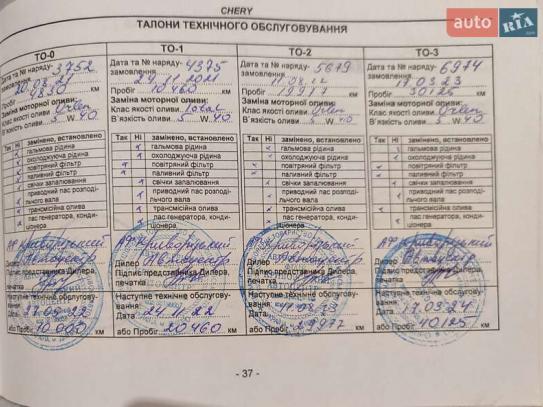 CHERY
auto RIA.com
ТАЛОНИ ТЕХНІЧНОГО ОБСЛУГОВУВАННЯ
ТО-0
Дата та № наряду-замовлення 3752
Пробіг км
Заміна моторної оливи:
Клас якості оливи Orlen
В'язкість оливи 5 W 40
Так Ні замінено, встановлено
гальмова рідина
охолоджуюча рідина
повітряний фільтр
паливний фільтр
свічки запалювання
приводний пас розподільчого вала
трансмісійна олива
пас генератора, кондиціонера
Підпис представника Дилера,
Наступне технічне обслуговування:
або Пробіг 10000 км
ТО-1
Дата та № наряду- 4375
замовлення 24.11.2021
Пробіг 10460 км
Заміна моторної оливи:
Клас якості оливи Total
В'язкість оливи 5 W 40
Так Ні замінено, встановлено
гальмова рідина
охолоджуюча рідина
повітряний фільтр
паливний фільтр
свічки запалювання
приводний пас розподільчого вала
трансмісійна олива
пас генератора, кондиціонера
Дилер
Підпис представника Дилера,
печатка
Наступне технічне обслуговування:
Дата 24.11.22
або Пробіг 20460 км
ТО-2
Дата та № наряду- 5679
замовлення
Пробіг 19977 км
Заміна моторної оливи:
Клас якості оливи Orlen
В'язкість оливи 5 W 40
Так Ні замінено, встановлено
гальмова рідина
охолоджуюча рідина
повітряний фільтр
паливний фільтр
свічки запалювання
приводний пас розподільчого вала
трансмісійна олива
пас генератора, кондиціонера
Дилер
Підпис представника Дилера,
печатка
Наступне технічне обслуговування:
Дата
або Пробіг 29977 км
ТО-3
Дата та № наряду- 6974
замовлення 17.03.23
Пробіг 30125 км
Заміна моторної оливи:
Клас якості оливи Orlen
В'язкість оливи 5 W 40
Так Ні замінено, встановлено
гальмова рідина
охолоджуюча рідина
повітряний фільтр
паливний фільтр
свічки запалювання
приводний пас розподільчого вала
трансмісійна олива
пас генератора, кондиціонера
Дилер
Підпис представника Дилера,
печатка
Наступне технічне обслуговування:
Дата 17.03.24
або Пробіг 40125 км
- 37 -